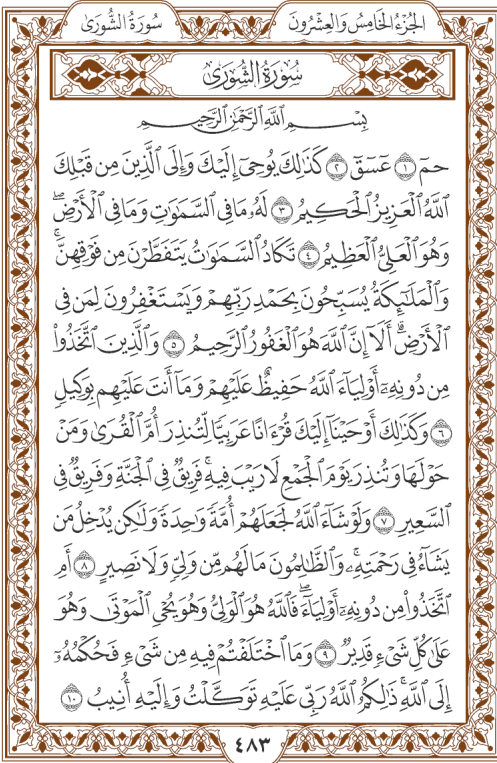 الجُزْءُ الخَامِسُ وَالعِشْرُونَ سُورَةُ الشُّورَىٰ
سُورَةُ الشُّورَىٰ
بِسْمِ ٱللَّهِ ٱلرَّحْمَٰنِ ٱلرَّحِيمِ
حمٓ ١ عٓسٓقٓ ٢ كَذَٰلِكَ يُوحِيٓ إِلَيْكَ وَإِلَى ٱلَّذِينَ مِن قَبْلِكَ
ٱللَّهُ ٱلْعَزِيزُ ٱلْحَكِيمُ ٣ لَهُۥ مَا فِي ٱلسَّمَٰوَٰتِ وَمَا فِي ٱلْأَرْضِۖ
وَهُوَ ٱلْعَلِيُّ ٱلْعَظِيمُ ٤ تَكَادُ ٱلسَّمَٰوَٰتُ يَتَفَطَّرْنَ مِن فَوْقِهِنَّۚ
وَٱلْمَلَٰٓئِكَةُ يُسَبِّحُونَ بِحَمْدِ رَبِّهِمْ وَيَسْتَغْفِرُونَ لِمَن فِي
ٱلْأَرْضِۗ أَلَآ إِنَّ ٱللَّهَ هُوَ ٱلْغَفُورُ ٱلرَّحِيمُ ٥ وَٱلَّذِينَ ٱتَّخَذُوا۟
مِن دُونِهِۦٓ أَوْلِيَآءَ ٱللَّهُ حَفِيظٌ عَلَيْهِمْ وَمَآ أَنتَ عَلَيْهِم بِوَكِيلٍ
٦ وَكَذَٰلِكَ أَوْحَيْنَآ إِلَيْكَ قُرْءَانًا عَرَبِيًّا لِّتُنذِرَ أُمَّ ٱلْقُرَىٰ وَمَنْ
حَوْلَهَا وَتُنذِرَ يَوْمَ ٱلْجَمْعِ لَا رَيْبَ فِيهِۚ فَرِيقٌ فِي ٱلْجَنَّةِ وَفَرِيقٌ فِي
ٱلسَّعِيرِ ٧ وَلَوْ شَآءَ ٱللَّهُ لَجَعَلَهُمْ أُمَّةً وَٰحِدَةً وَلَٰكِن يُدْخِلُ مَن
يَشَآءُ فِي رَحْمَتِهِۦۚ وَٱلظَّٰلِمُونَ مَا لَهُم مِّن وَلِيٍّ وَلَا نَصِيرٍ ٨ أَمِ
ٱتَّخَذُوا۟ مِن دُونِهِۦٓ أَوْلِيَآءَۖ فَٱللَّهُ هُوَ ٱلْوَلِيُّ وَهُوَ يُحْيِ ٱلْمَوْتَىٰ وَهُوَ
عَلَىٰ كُلِّ شَيْءٍ قَدِيرٌ ٩ وَمَا ٱخْتَلَفْتُمْ فِيهِ مِن شَيْءٍ فَحُكْمُهُۥٓ
إِلَى ٱللَّهِۚ ذَٰلِكُمُ ٱللَّهُ رَبِّي عَلَيْهِ تَوَكَّلْتُ وَإِلَيْهِ أُنِيبُ ١٠
٤٨٣